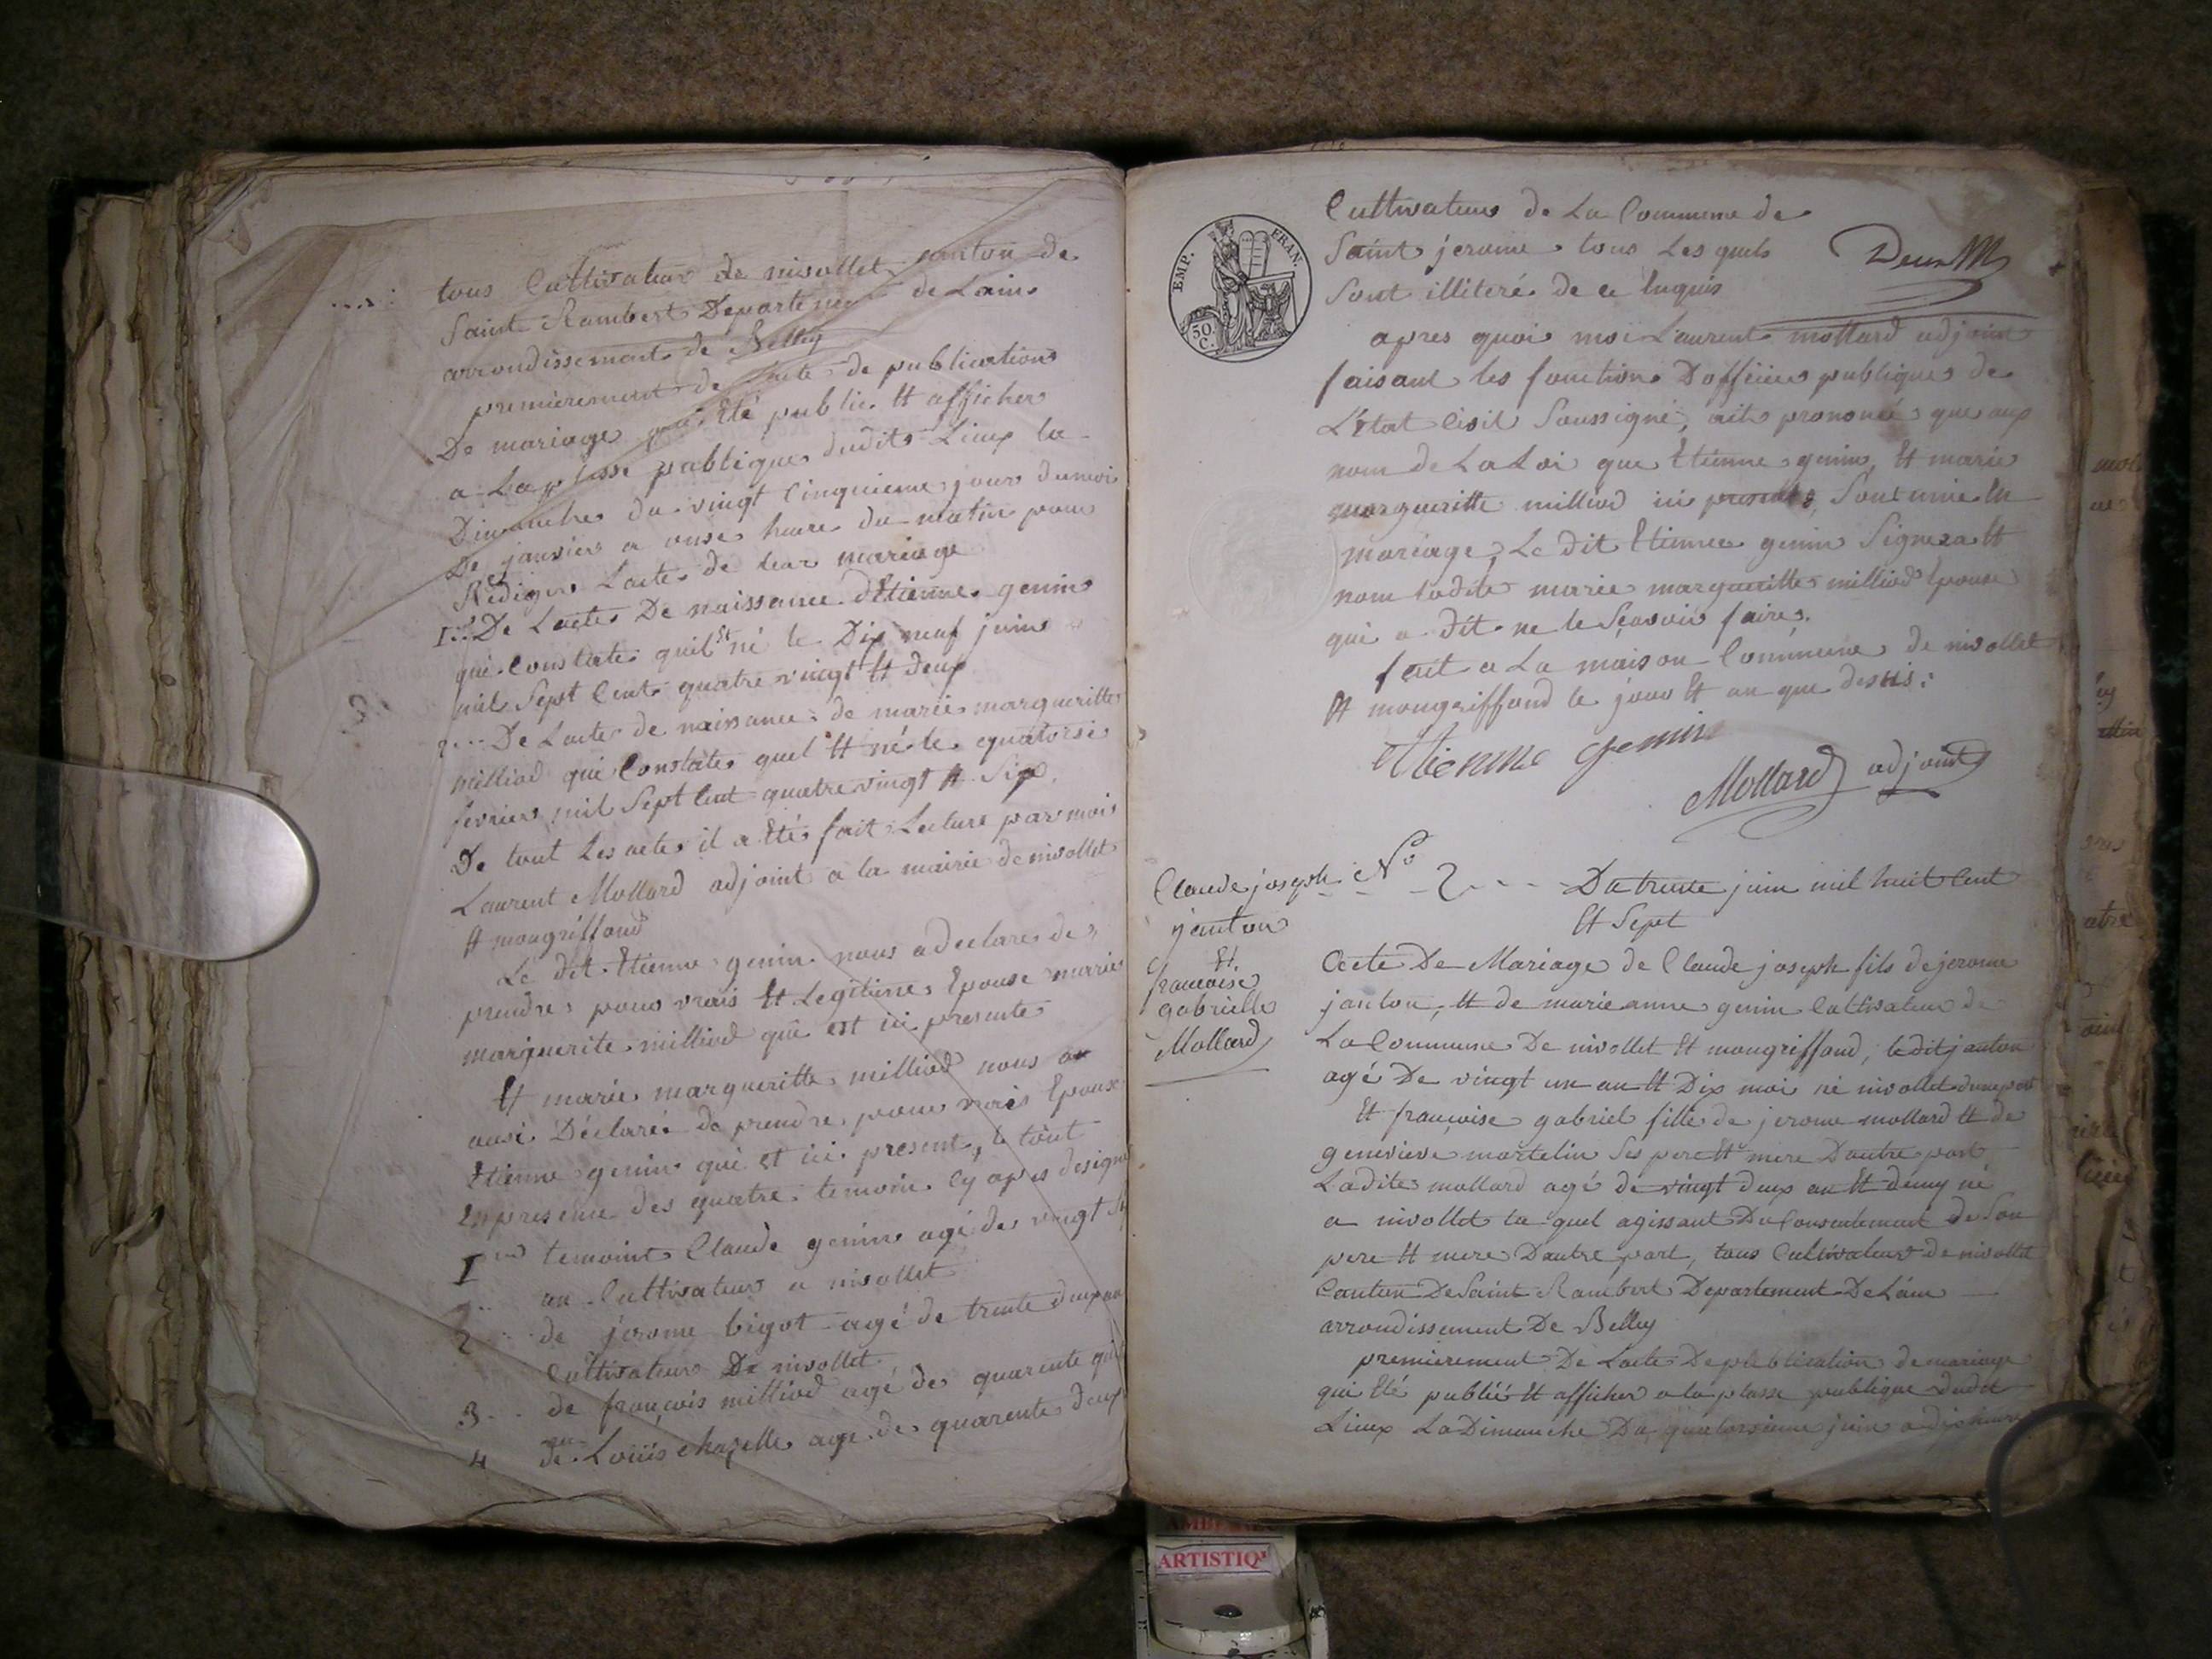 tous Cultivateur de nivollet canton de
Saint Rambert Departement de Lain
arrondissement de Belley
premierement de Lacte de publications
De mariage qui Eté public Et afficher
a La plasse publique dudits Lieux la
Dimanche du vingt Cinquieme jour dumois
De janvier a onse heure du matin pour
Rediger Lacte de leur mariage
1.er De Lacte De naissance dEtienne genin
qui Constate quil Et né le Dix neuf juin
mil Sept Cent quatre vingt Et deux
2... De Lacte de naissance de marie margueritte
milliod qui Constate quel Et né le quatorse
fevrier mil Sept Cent quatre vingt Et Six
De tout Les acte il a Eté fait Lecture par moi
Laurent Mollard adjoint a la mairie de nivollet
Et mongriffond
Le dit Etienne genin nous a declare de
prendre pour vrais Et Legitime Epouse marie
marguerite milliod qui est ici presente
Et marie margueritte milliod nous a
ausi Déclaré de prendre pour vrais Epouse
Etienne genin qui et ici present, le tout
En presence des quatre temoin Cy apres designe
1er temoint Claude genin agé de vingt
an Cultivateur a nivollet
2 de jerome bigot agé de trente deux an
Cultivateur De nivollet
3 de françois milliod agé de quarente
4 de Louis chapelle age de quarente deux
EMP. FRAN.
50 C.
Cultivateur de La Commune de
Saint jerome tous Les quels
Sont illiteré de ce Enquis
Deux
apres quoi moi Laurent mollard adjoint
faisant les fonction Dofficier publique de
L'état Civil Soussigné, ait prononcé que aux
nom de La Loi que Etienne genin, Et marie
margueritte milliod ici present, Sont unie En
mariage, Le dit Etienne genin Signera Et
nom ladite marie margueritte milliod Epouse
qui a dit ne le Scavoir faire.
fait a La maison Commune de nivollet
Et mongriffond le jour Et an que desus:
Etienne genin
Mollard adjoint
Claude joseph
janton
Et
francoise
gabrielle
Mollard
N° 2 - - - Du trente juin mil huit Cent
Et Sept
Acte De Mariage de Claude joseph fils de jerome
janton, Et de marie anne genin Cultivateur de
La Commune De nivollet Et mongriffond, le dit janton
agé De vingt un an Et Dix moi né nivollet dune part
Et françoise gabriel fille de jerome mollard Et de
genevieve martelin Ses pere Et mere Dautre part
Ladite mollard agé de vingt deux an Et demy né
a nivollet la quel agissant Du Consentement de Son
pere Et mere Dautre part, tous Cultivateur de nivollet
Canton De Saint Rambert Departement De Lain
arrondissement De Belley
premierement De Lacte De publication de mariage
qui Eté publié Et afficher a la plasse publique dudit
Lieux La Dimanche Du quatorsieme juin a dix heure
AMBE
ARTISTIQ